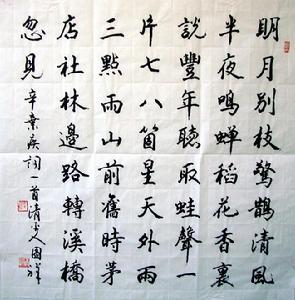 明月別枝驚鵲清風
半夜鳴蟬稻花香裏
說豐年聽取蛙聲一
片七八箇星天外兩
三點雨山前舊時茅
店社林邊路轉溪橋
忽見 辛棄疾詞一首